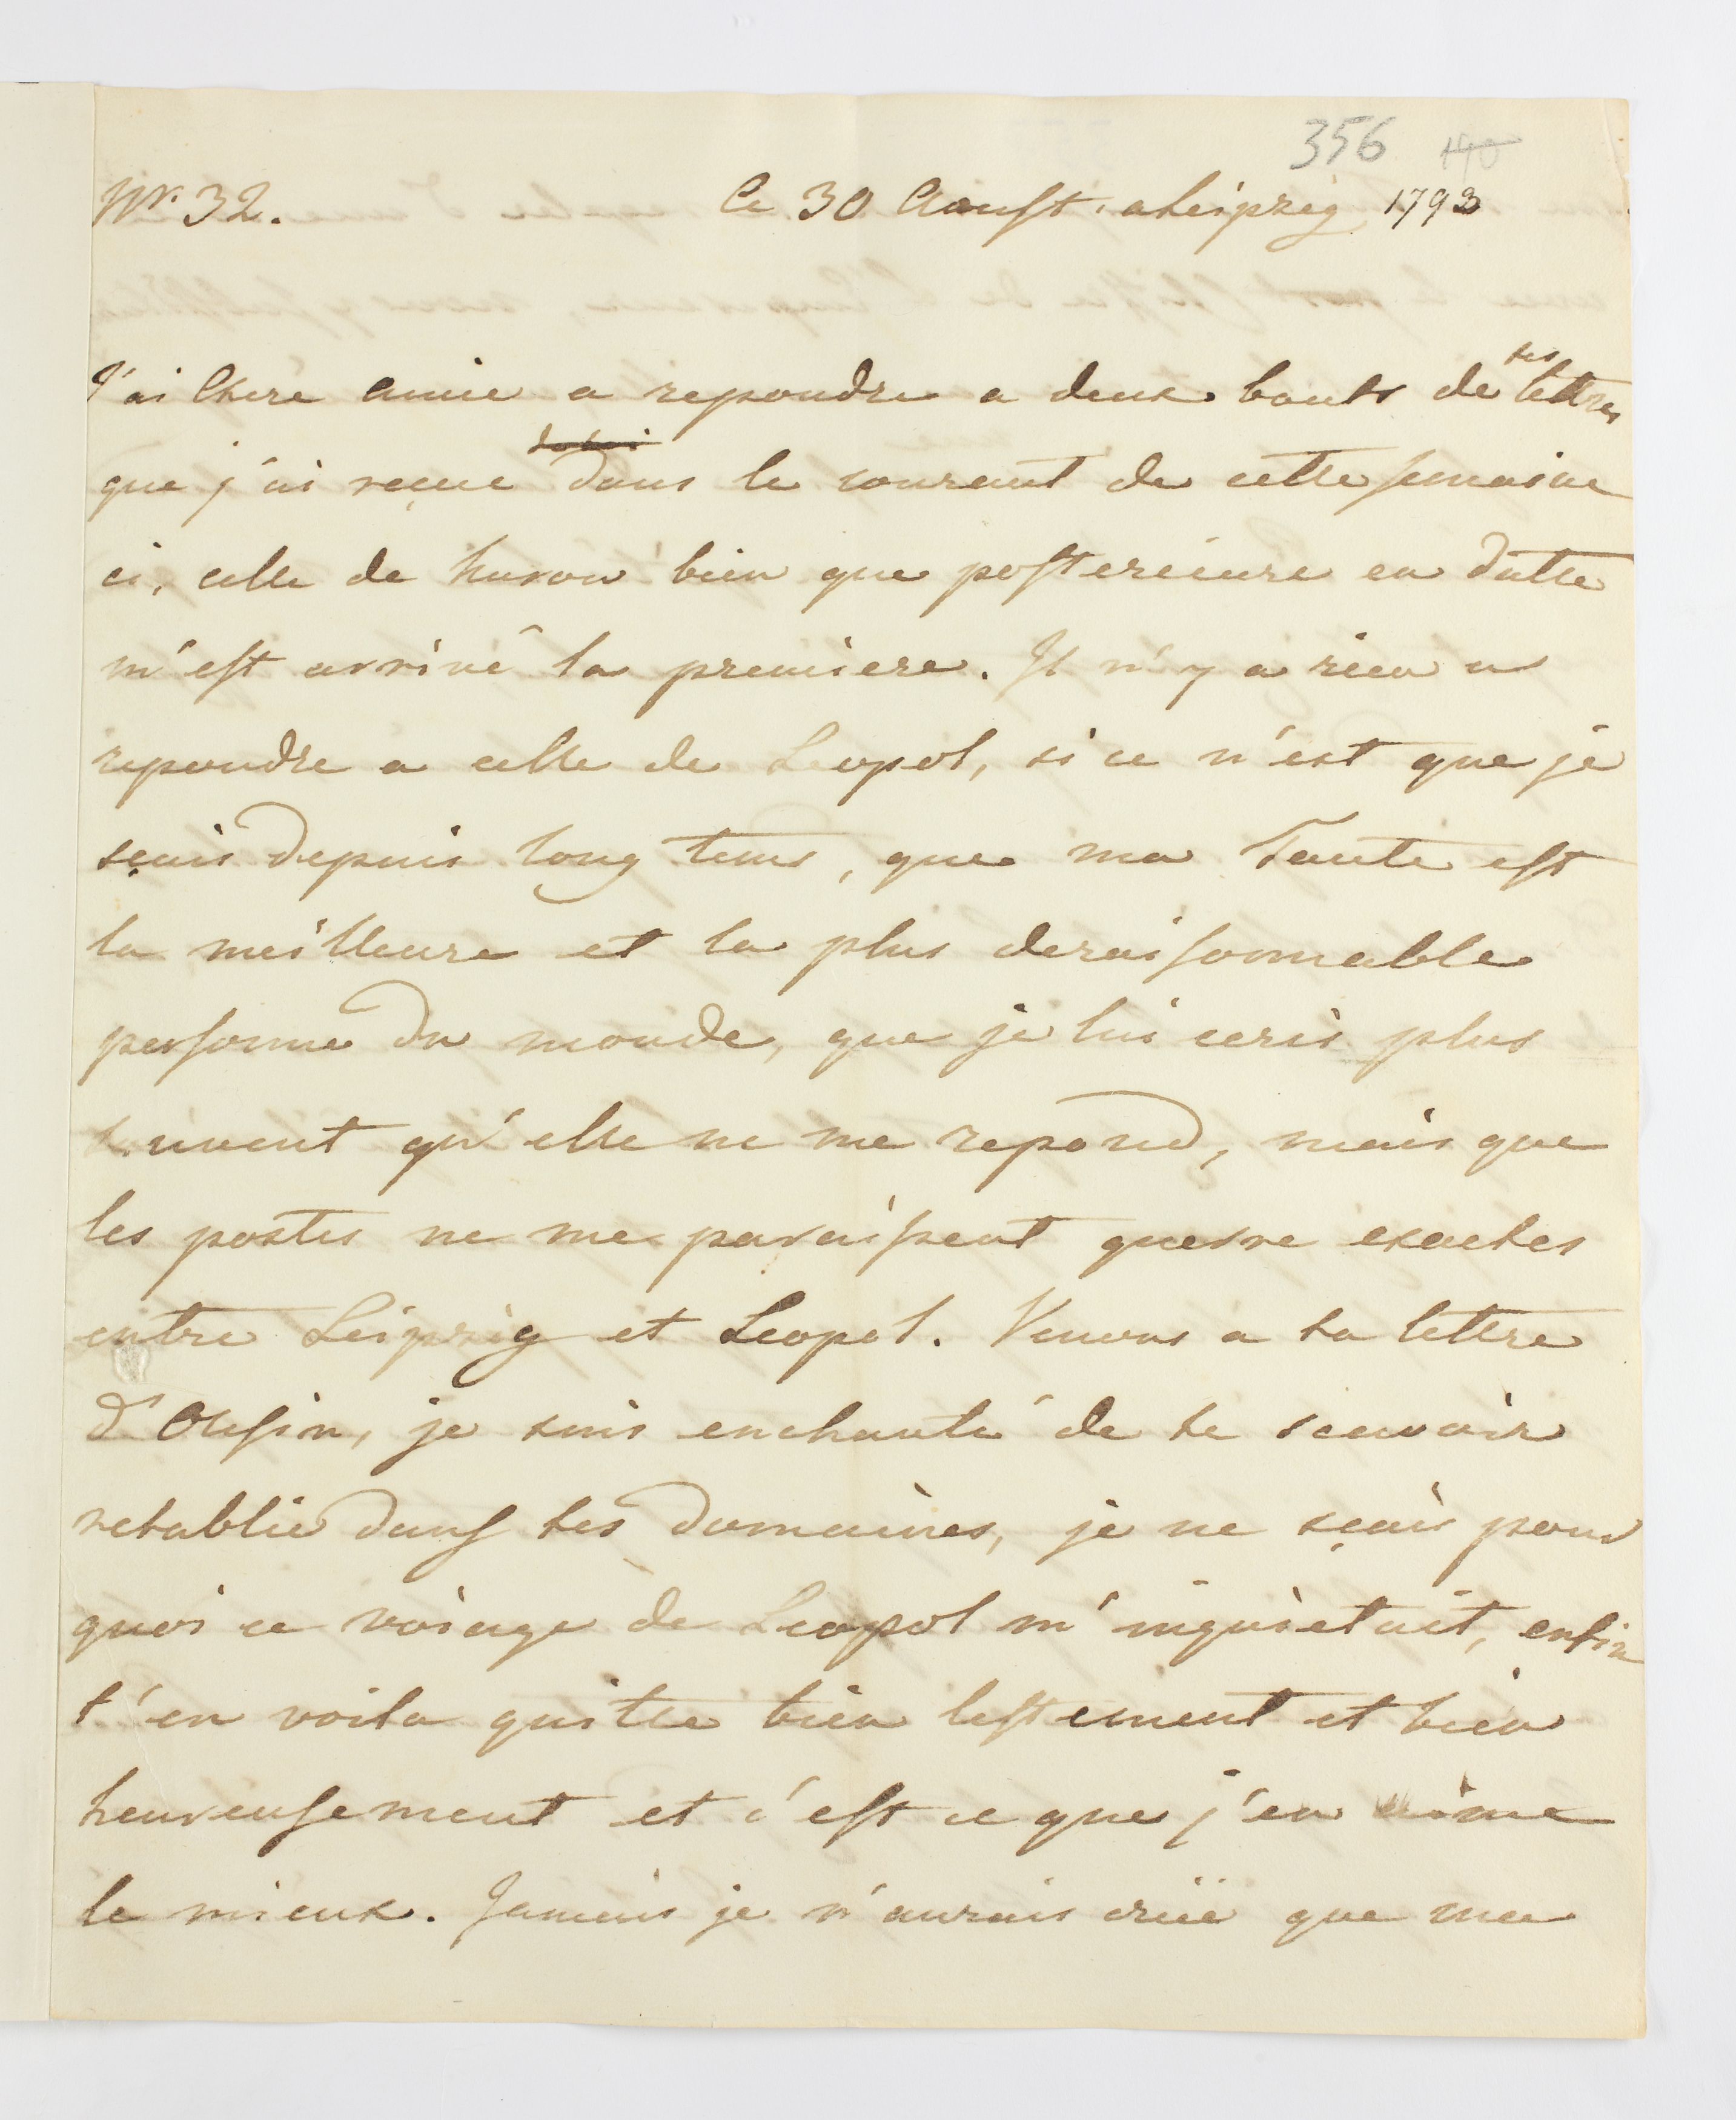 356 140
Nr. 32. Ce 30 Aoust. a Leipzig 1793
J'ai Chere Amie a repondre a deux bouts de tes lettres
que j'ai reçue dans le courant de cette semaine
ci, celle de bien que posterieure en datte
m'est arrivé la premiere. Il n'y a rien a
repondre a celle de Leopol, si ce n'est que je
sçais depuis long tems, que ma Tante est
la meilleure et la plus deraisonnable
personne du monde, que je lui ecris plus
souvent qu'elle ne me repond, mais que
les postes ne me paraissent guerre exactes
entre Leipzig et Leopol. Venons a ta lettre
d'Olesin, je suis enchanté de te scavoir
retablie dans tes domaines, je ne sçais pour
quoi ce voiage de Leopol m'inquietait, enfin
t'en voila quitte bien lestement et bien
heureusement et c'est ce que j'en aime
le mieux. Jamais je n'aurais crüe que ma